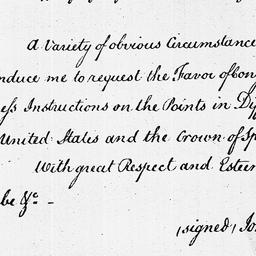 A Variety of obvious Circumstance
nduce me to request the Favor of Con
ess Instructions on the Points in Di
United States and the Crown of Sp
With great Respect and Esteem
be &c. -
(signed) Jo